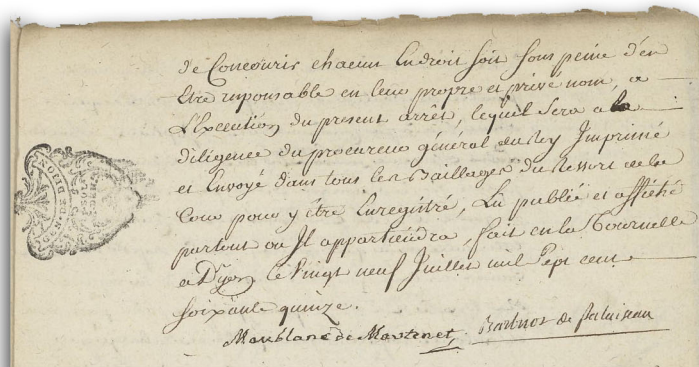 de Concourir chacun Endroit soit sous peine d'en
Etre responsable en leur propre et privé nom, a
L'Execution du present arrêt, lequel sera a la
diligence du procureur général du Roy Imprimé
et Envoyé dans tous les Bailliages du Ressort de la
Cour pour y être Enregistré, Lû publié et affiché
partout ou Il appartiendra, fait en la Tournelle
a Dijon le Vingt neuf Juillet mil sept cent
soixante quinze.
de